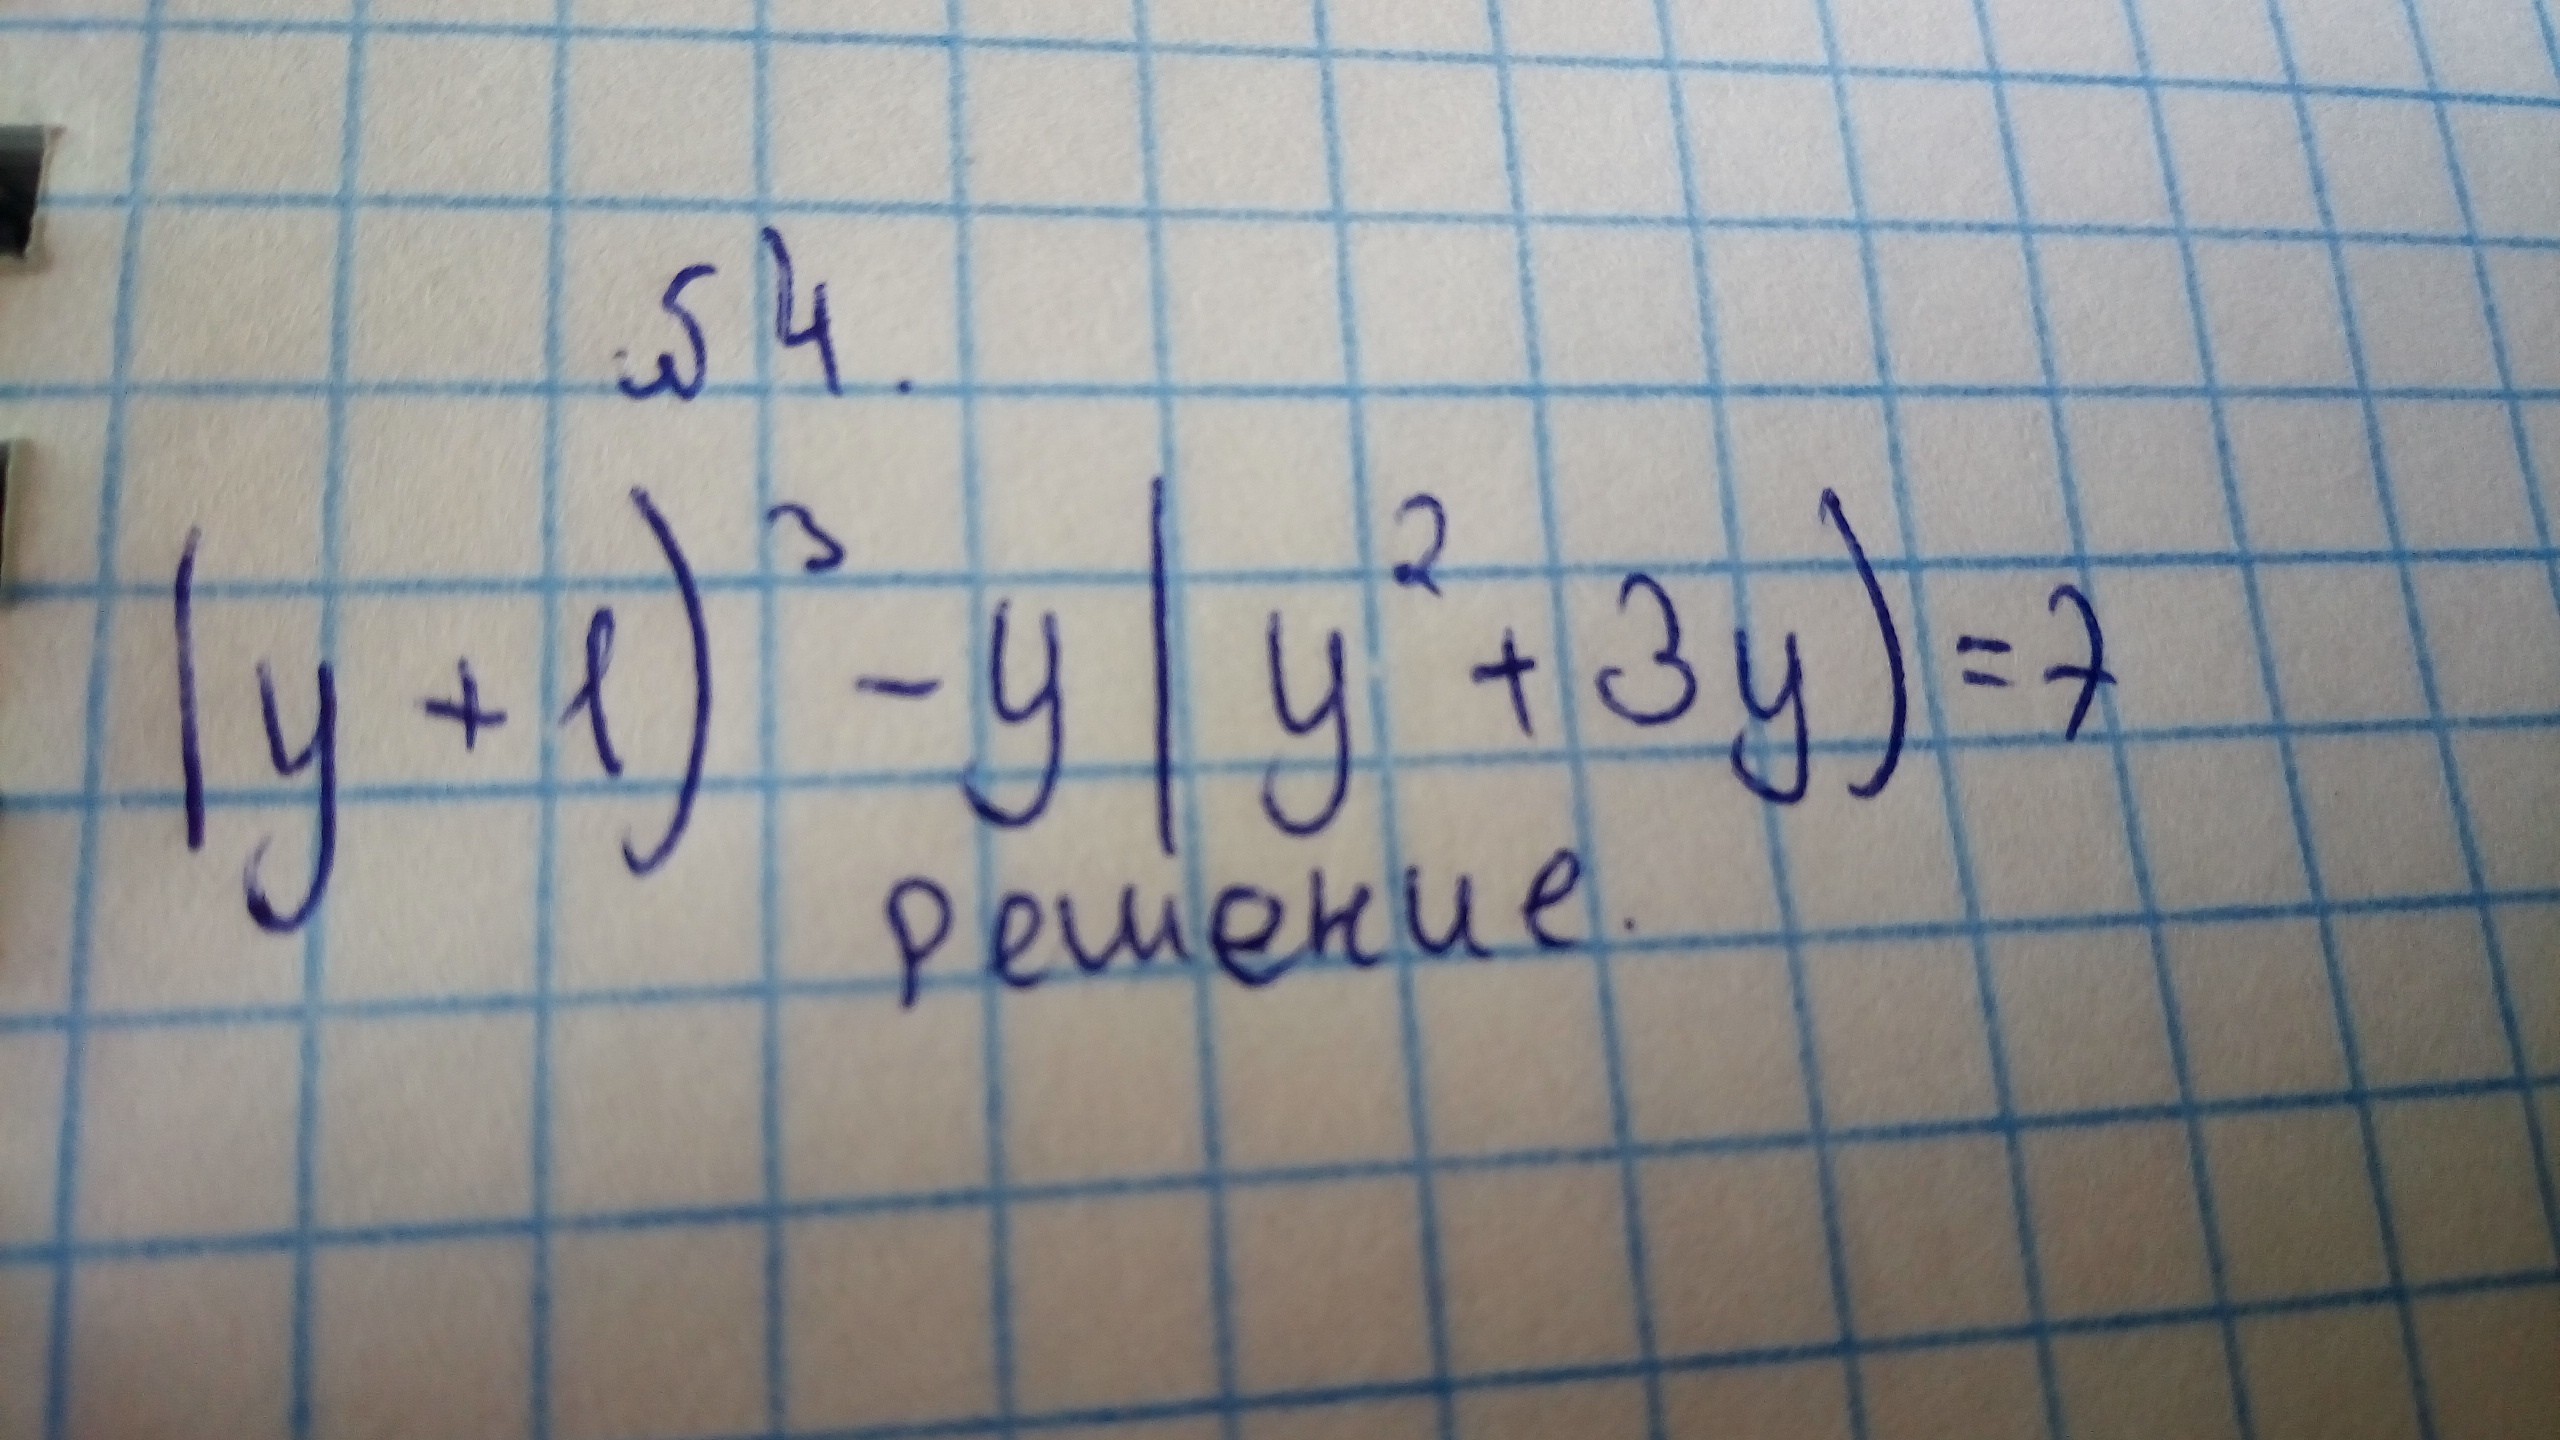 №4.
(y+1)³-y(y²+3y)=7
решение.